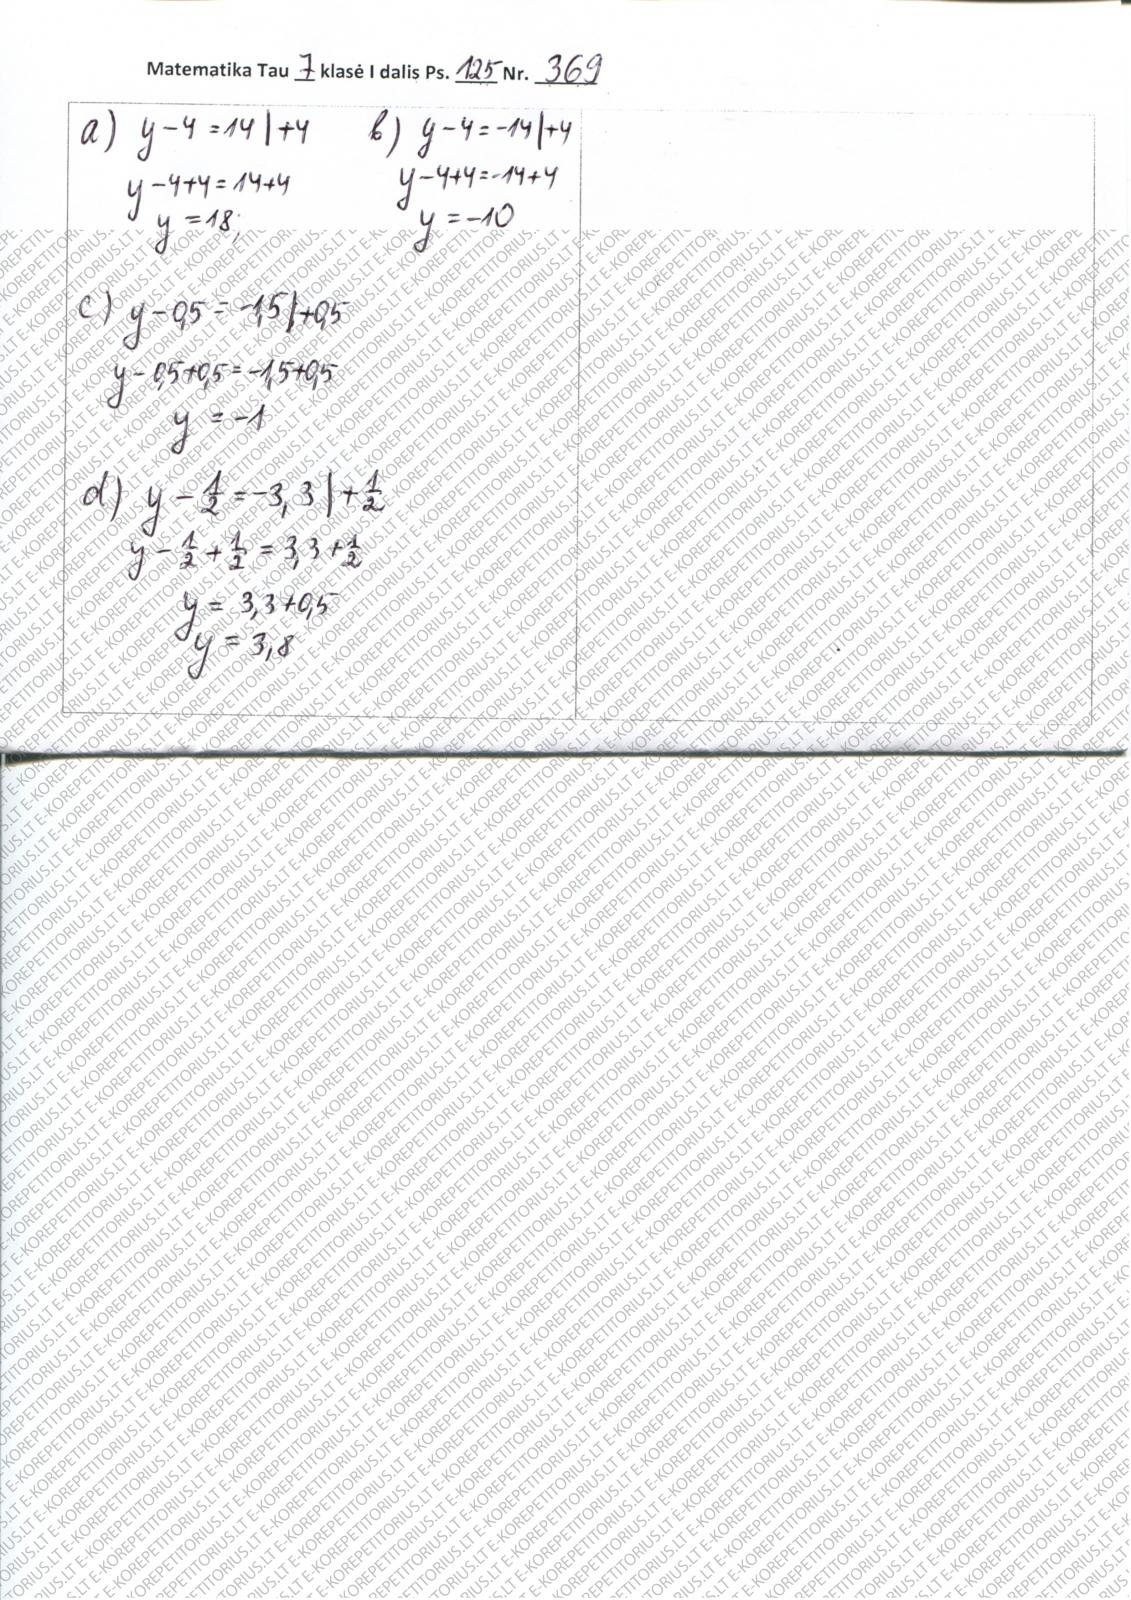 Matematika Tau 7 klasė I dalis Ps. 125 Nr. 369
a) y - 4 = 14 | +4
y - 4 + 4 = 14 + 4
y = 18;
b) y - 4 = -14 | +4
y - 4 + 4 = -14 + 4
y = -10
c) y - 0,5 = -1,5 | +0,5
y - 0,5 + 0,5 = -1,5 + 0,5
y = -1
d) y - 1/2 = -3,3 | + 1/2
y - 1/2 + 1/2 = 3,3 + 1/2
y = 3,3 + 0,5
y = 3,8
E-KOREPETITORIUS.LT